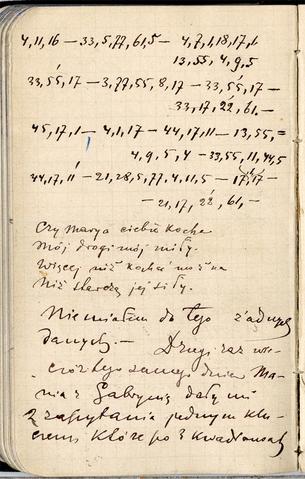 4,11,16 – 33,5,77,61,5 – 4,7,1,18,17,1.
13,55,4,9,5
33,55,17 – 3,77,55,8,17 – 33,55,17 –
33,17,22,61. –
45,17,1 – 4,1,17 – 44,17,11 – 13,55, =
4,9,5,4 – 33,55,11,44,5
44,17,11 – 21,28,5,77,4,11,5 – 17,17 –
21,17,22,61, –
Czy Marya ciebie kocha
Mój drogi mój miły.
Więcej niż kochać można
Niż starczą jej siły.
Nie miałem do tego żadnych
danych. – Drugi raz
tego samego dnia Ma-
nia z Gabrynią dały mi
2 zapytania jednym klu-
czem, które po 3 kwadransach